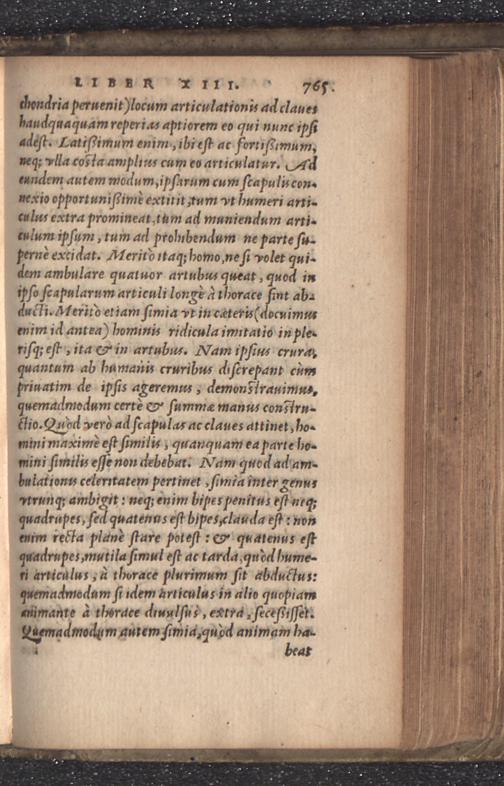 LIBER XIII. 765.
chondria peruenit) locum articulationis ad claues
haudquaquam reperias aptiorem eo qui nunc ipsi
adest. Latißimum enim, ibi est ac fortißimum,
neq; vlla costa amplius cum eo articulatur. Ad
eundem autem modum, ipsarum cum scapulis con-
nexio opportunißimè extitit, tum vt humeri arti-
culus extra promineat, tum ad muniendum arti-
culum ipsum, tum ad prohibendum ne parte su-
pernè excidat. Meritò itaq; homo, ne si volet qui-
dem ambulare quatuor artubus queat, quòd in
ipso scapularum articuli longè à thorace sint ab-
ducti. Meritò etiam simia vt in cæteris (docuimus
enim id antea) hominis ridicula imitatio in ple-
risq; est, ita & in artubus. Nam ipsius crura,
quantum ab humanis cruribus discrepant cùm
priuatim de ipsis ageremus, demonstrauimus,
quemadmodum certè & summæ manus constru-
ctio. Quod verò ad scapulas ac claues attinet, ho-
mini maximè est similis, quanquam ea parte ho-
mini similis esse non debebat. Nam quod ad am-
bulationis celeritatem pertinet, simia inter genus
vtrunq; ambigit: neq; enim bipes penitus est neq;
quadrupes, sed quatenus est bipes, clauda est: non
enim recta planè stare potest: & quatenus est
quadrupes, mutila simul est ac tarda, quòd hume-
ri articulus, à thorace plurimum sit abductus:
quemadmodum si idem articulus in alio quopiam
animante à thorace diuulsus, extra, secessisset.
Quemadmodum autem simia, quòd animam ha-
beat